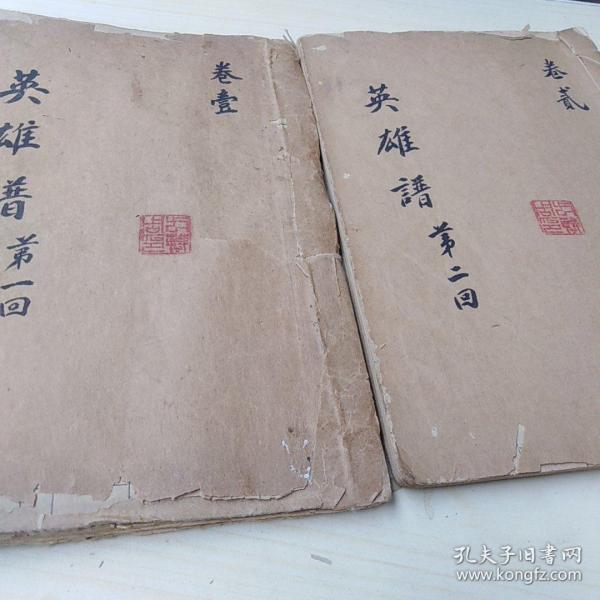 卷壹
英雄普第一回
卷貳
英雄譜第二回
孔夫子旧书网
www.kongfz.com